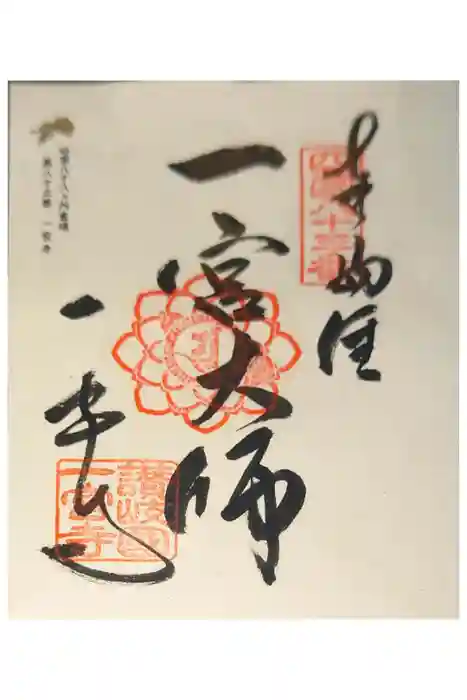 奉納経
四国八十三番
一宮大師
一宮寺
讃岐國
一宮寺
四国八十八ヶ所霊場
第八十三番 一宮寺